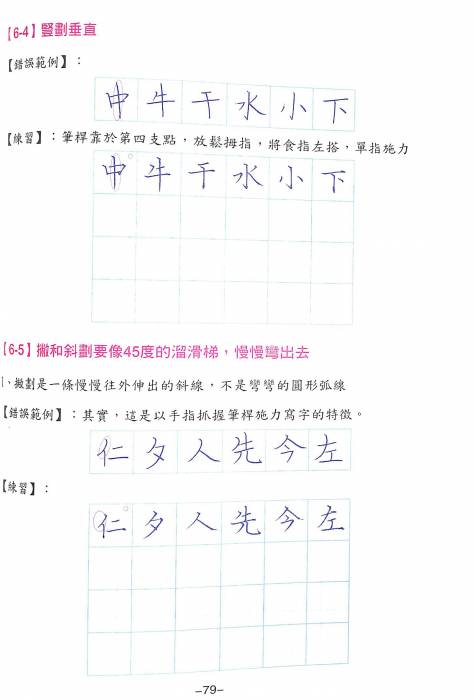 【6-4】豎劃垂直
【錯誤範例】：
中 牛 干 水 小 下
【練習】：筆桿靠於第四支點，放鬆拇指，將食指左搭，單指施力
中 牛 干 水 小 下
【6-5】撇和斜劃要像45度的溜滑梯，慢慢彎出去
1、撇劃是一條慢慢往外伸出的斜線，不是彎彎的圓形弧線
【錯誤範例】：其實，這是以手指抓握筆桿施力寫字的特徵。
仁 夕 人 先 今 左
【練習】：
仁 夕 人 先 今 左
-79-